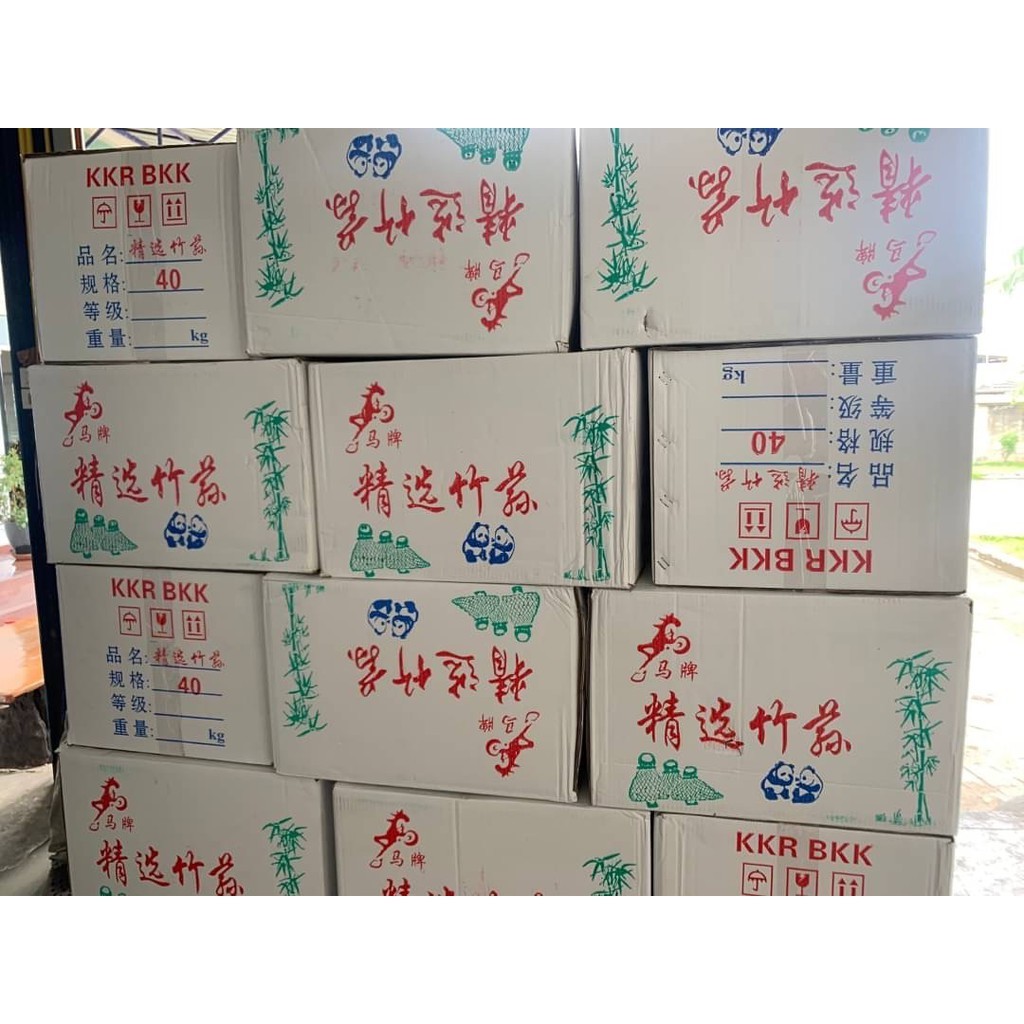 KKR BKK
品名:精选竹荪
规格:40
等级:
重量: kg
精选竹荪
马牌
精选竹荪
马牌
马牌
精选竹荪
马牌
精选竹荪
KKR BKK
品名:精选竹荪
规格:40
等级:
重量: kg
KKR BKK
品名:精选竹荪
规格:40
等级:
重量: kg
精选竹荪
马牌
马牌
精选竹荪
马牌
精选竹荪
马牌
精选竹荪
KKR BKK